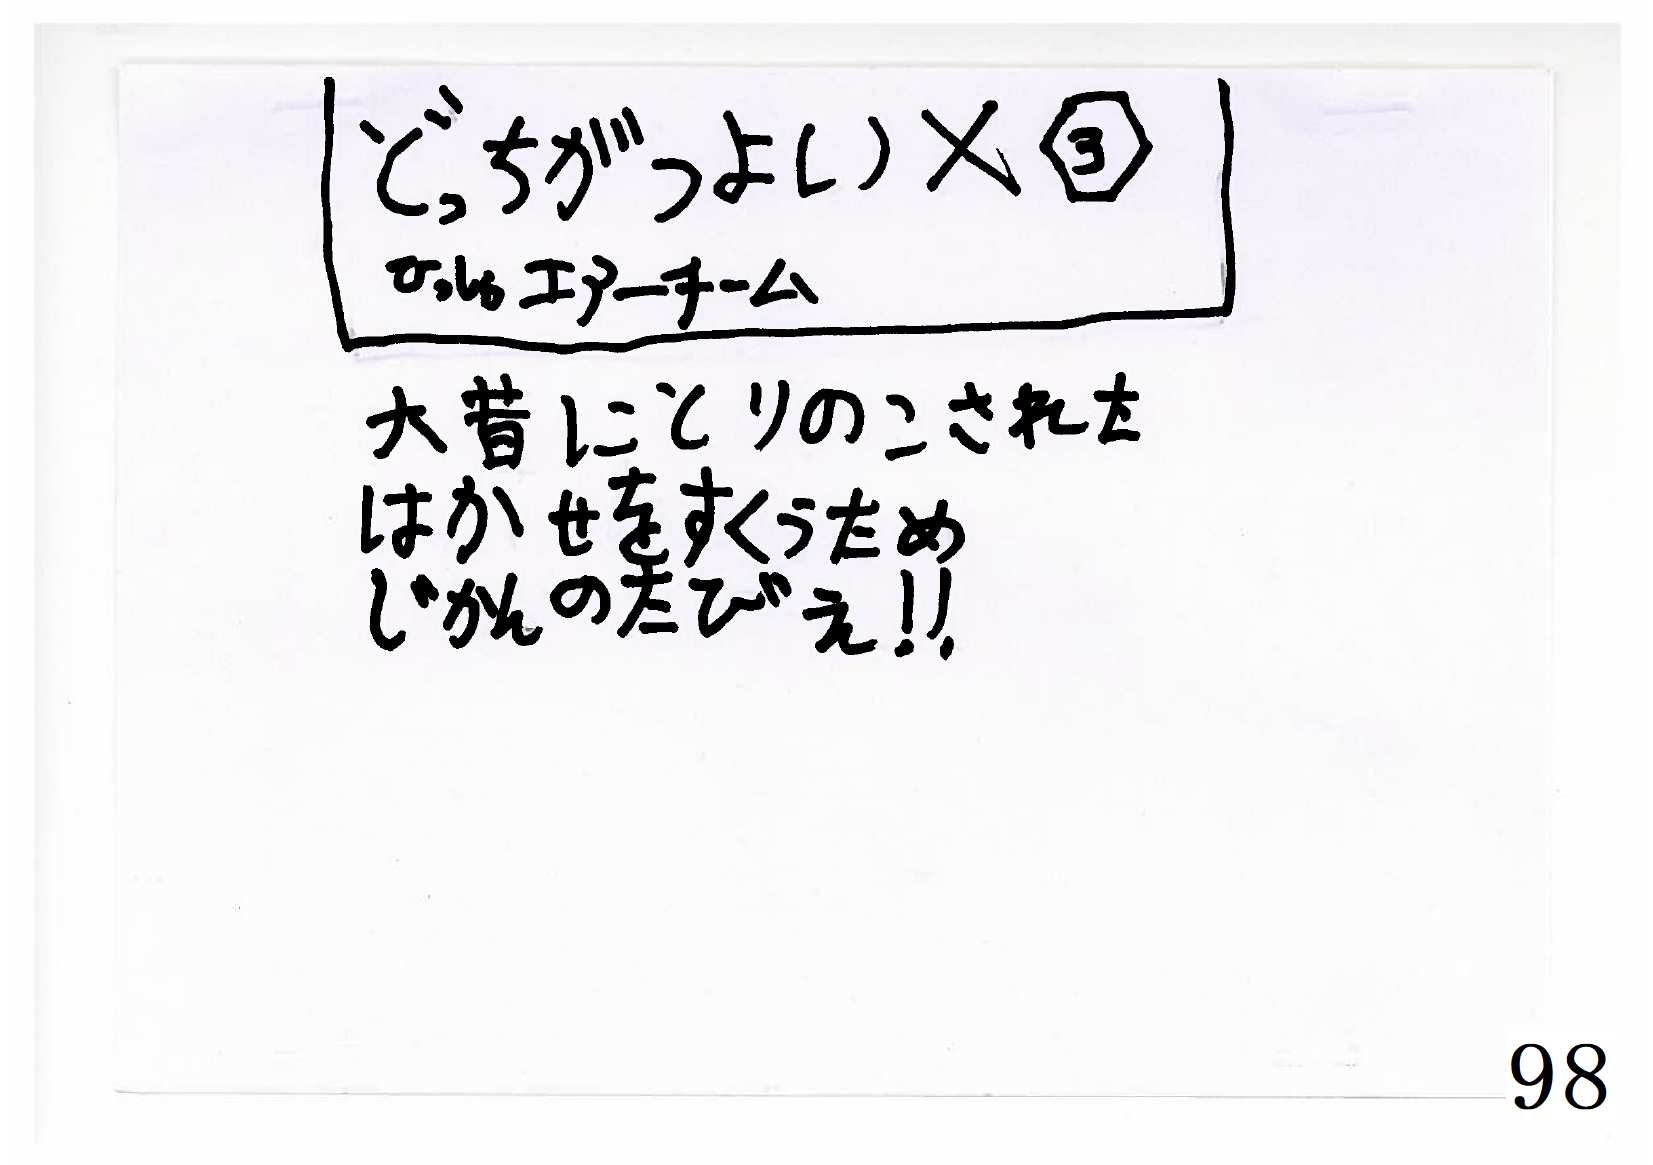 どっちがつよい X ③
ひっしゃ エアーチーム
大昔にとりのこされた
はかせをすくうため
じかんのたびえ!!
98